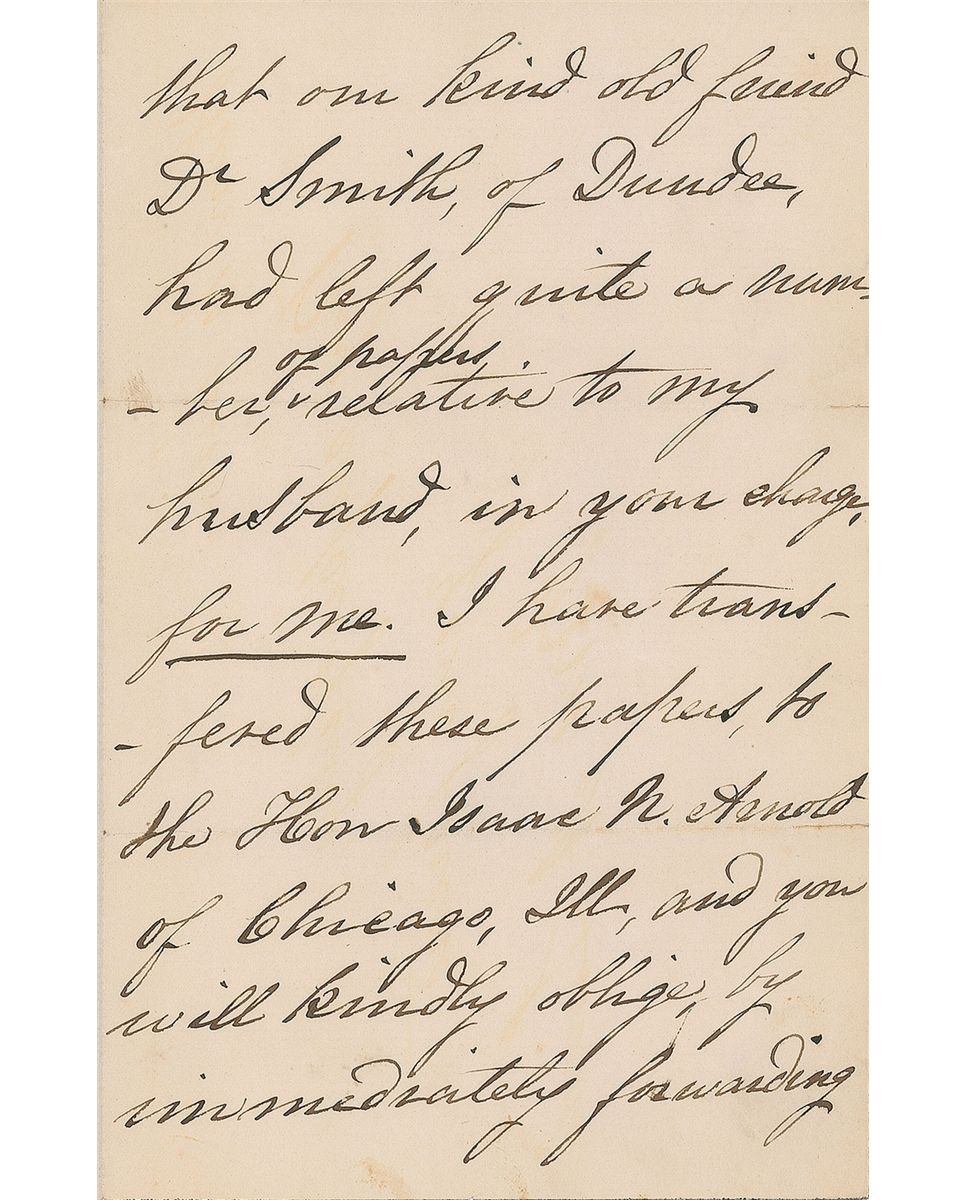 that our kind old friend
Dr Smith, of Dundee,
had left quite a num-
of papers
- ber, relative to my
husband, in your charge,
for me. I have trans-
- fered these papers, to
the Hon Isaac N. Arnold
of Chicago, Ill, and you
will kindly oblige, by
immediately forwarding